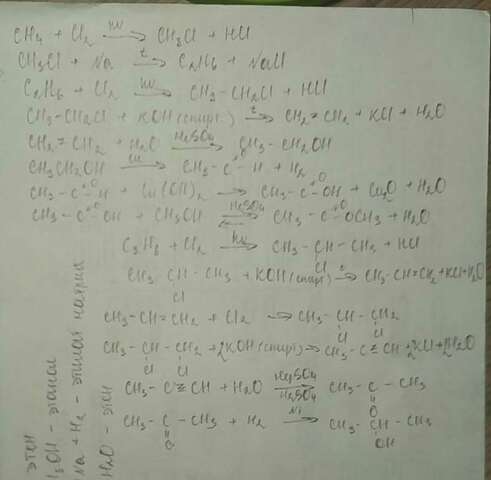 CH₄ + Cl₂ →(hν) CH₃Cl + HCl
CH₃Cl + Na →(t) C₂H₆ + NaCl
C₂H₆ + Cl₂ →(hν) CH₃-CH₂Cl + HCl
CH₃-CH₂Cl + KOH (спирт) →(t) CH₂=CH₂ + KCl + H₂O
CH₂=CH₂ + H₂O →(H₂SO₄) CH₃-CH₂OH
CH₃CH₂OH →(Cu) CH₃-C(=O)-H + H₂
CH₃-C(=O)-H + Cu(OH)₂ → CH₃-C(=O)-OH + Cu₂O + H₂O
CH₃-C(=O)-OH + CH₃OH ⇄(H₂SO₄) CH₃-C(=O)-OCH₃ + H₂O
C₃H₈ + Cl₂ →(hν) CH₃-CH(Cl)-CH₃ + HCl
CH₃-CH(Cl)-CH₃ + KOH (спирт) →(t) CH₃-CH=CH₂ + KCl + H₂O
CH₃-CH=CH₂ + Cl₂ → CH₃-CH(Cl)-CH₂(Cl)
CH₃-CH(Cl)-CH₂(Cl) + 2KOH (спирт) → CH₃-C≡CH + 2KCl + 2H₂O
CH₃-C≡CH + H₂O →(HgSO₄, H₂SO₄) CH₃-C(=O)-CH₃
CH₃-C(=O)-CH₃ + H₂ →(Ni) CH₃-CH(OH)-CH₃
этен
OH - этанол
Na + H₂ - этилат натрия
H₂O - этен